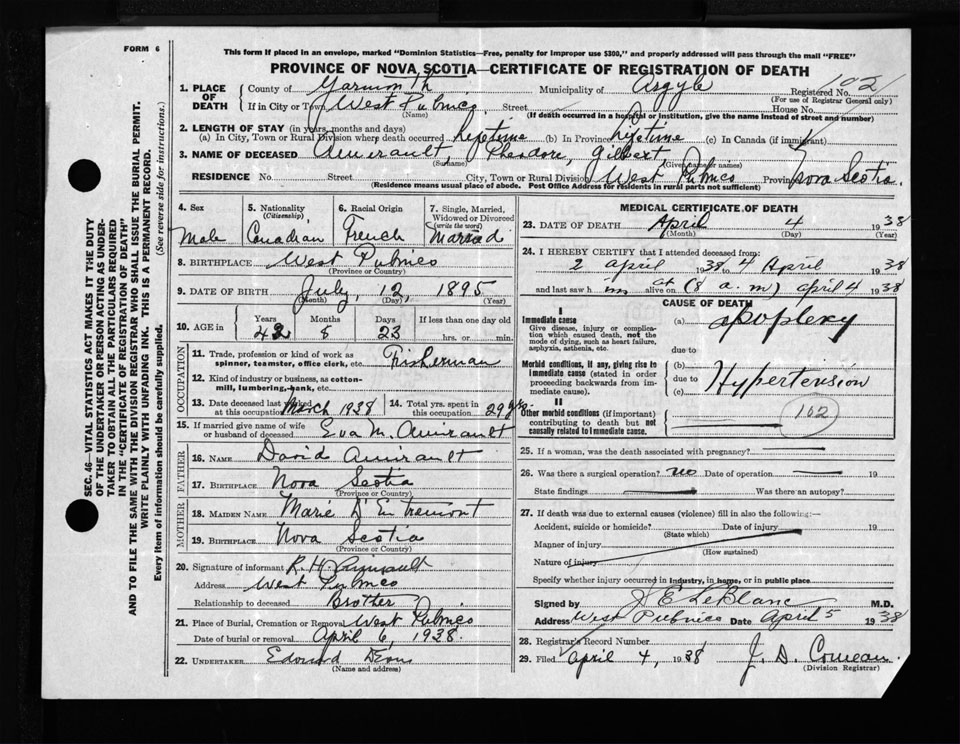 FORM 6
This form if placed in an envelope, marked "Dominion Statistics—Free, penalty for improper use $300," and properly addressed will pass through the mail "FREE"
PROVINCE OF NOVA SCOTIA—CERTIFICATE OF REGISTRATION OF DEATH
1. PLACE OF DEATH
County of Yarmouth Municipality of Argyle Registered No. 102
(For use of Registrar General only)
If in City or Town West Pubnico Street House No.
(Name) (If death occurred in a hospital or institution, give name instead of street and number)
2. LENGTH OF STAY (in years, months and days)
(a) In City, Town or Rural Division where death occurred lifetime (b) In Province lifetime (c) In Canada (if immigrant)
3. NAME OF DECEASED Amirault, Theodore, Gilbert
(Surname) (Given name or names)
RESIDENCE No. Street City, Town or Rural Division West Pubnico Province Nova Scotia.
(Residence means usual place of abode. Post Office Address for residents in rural parts not sufficient)
4. Sex Male
5. Nationality (Citizenship) Canadian
6. Racial Origin French
7. Single, Married, Widowed or Divorced (write the word) Married
8. BIRTHPLACE West Pubnico
(Province or Country)
9. DATE OF BIRTH July, 12, 1895
(Month) (Day) (Year)
10. AGE in Years Months Days If less than one day old
42 8 23 hrs. or min.
OCCUPATION
11. Trade, profession or kind of work as spinner, teamster, office clerk, etc. Fisherman
12. Kind of industry or business, as cotton-mill, lumbering, bank, etc.
13. Date deceased last worked at this occupation March 1938
14. Total yrs. spent in this occupation 29 yrs.
15. If married give name of wife or husband of deceased Eva M. Amirault
FATHER
16. NAME David Amirault
17. BIRTHPLACE Nova Scotia
(Province or Country)
MOTHER
18. MAIDEN NAME Marie D'Entremont
19. BIRTHPLACE Nova Scotia
(Province or Country)
20. Signature of informant R. H. Amirault
Address West Pubnico
Relationship to deceased Brother
21. Place of Burial, Cremation or Removal West Pubnico
Date of burial or removal April 6, 1938.
22. UNDERTAKER
(Name and address)
MEDICAL CERTIFICATE OF DEATH
23. DATE OF DEATH April 4 1938
(Month) (Day) (Year)
24. I HEREBY CERTIFY that I attended deceased from:
2 April 1938 to 4 April 1938
and last saw him alive on at (8 a.m) April 4 1938
CAUSE OF DEATH
I
Immediate cause
Give disease, injury or complication which caused death, not the mode of dying, such as heart failure, asphyxia, asthenia, etc.
(a) apoplexy
due to
Morbid conditions, if any, giving rise to immediate cause (stated in order proceeding backwards from immediate cause).
(b)
due to Hypertension
(c)
II
Other morbid conditions (if important) contributing to death but not causally related to immediate cause.
102
25. If a woman, was the death associated with pregnancy?
26. Was there a surgical operation? no Date of operation 19
State findings Was there an autopsy?
27. If death was due to external causes (violence) fill in also the following:—
Accident, suicide or homicide? Date of injury 19
(State which)
Manner of injury
(How sustained)
Nature of injury
Specify whether injury occurred in industry, in home, or in public place
Signed by J E LeBlanc M.D.
Address West Pubnico Date April 5 1938
28. Registrar's Record Number
29. Filed April 4, 1938 J. D. Comeau
(Division Registrar)
SEC. 46—VITAL STATISTICS ACT MAKES IT THE DUTY
OF THE UNDERTAKER OR PERSON ACTING AS UNDER-
TAKER TO OBTAIN ALL THE PARTICULARS REQUIRED
IN THE "CERTIFICATE OF REGISTRATION OF DEATH"
AND TO FILE THE SAME WITH THE DIVISION REGISTRAR WHO SHALL ISSUE THE BURIAL PERMIT.
WRITE PLAINLY WITH UNFADING INK. THIS IS A PERMANENT RECORD.
Every item of information should be carefully supplied. (See reverse side for instructions.)